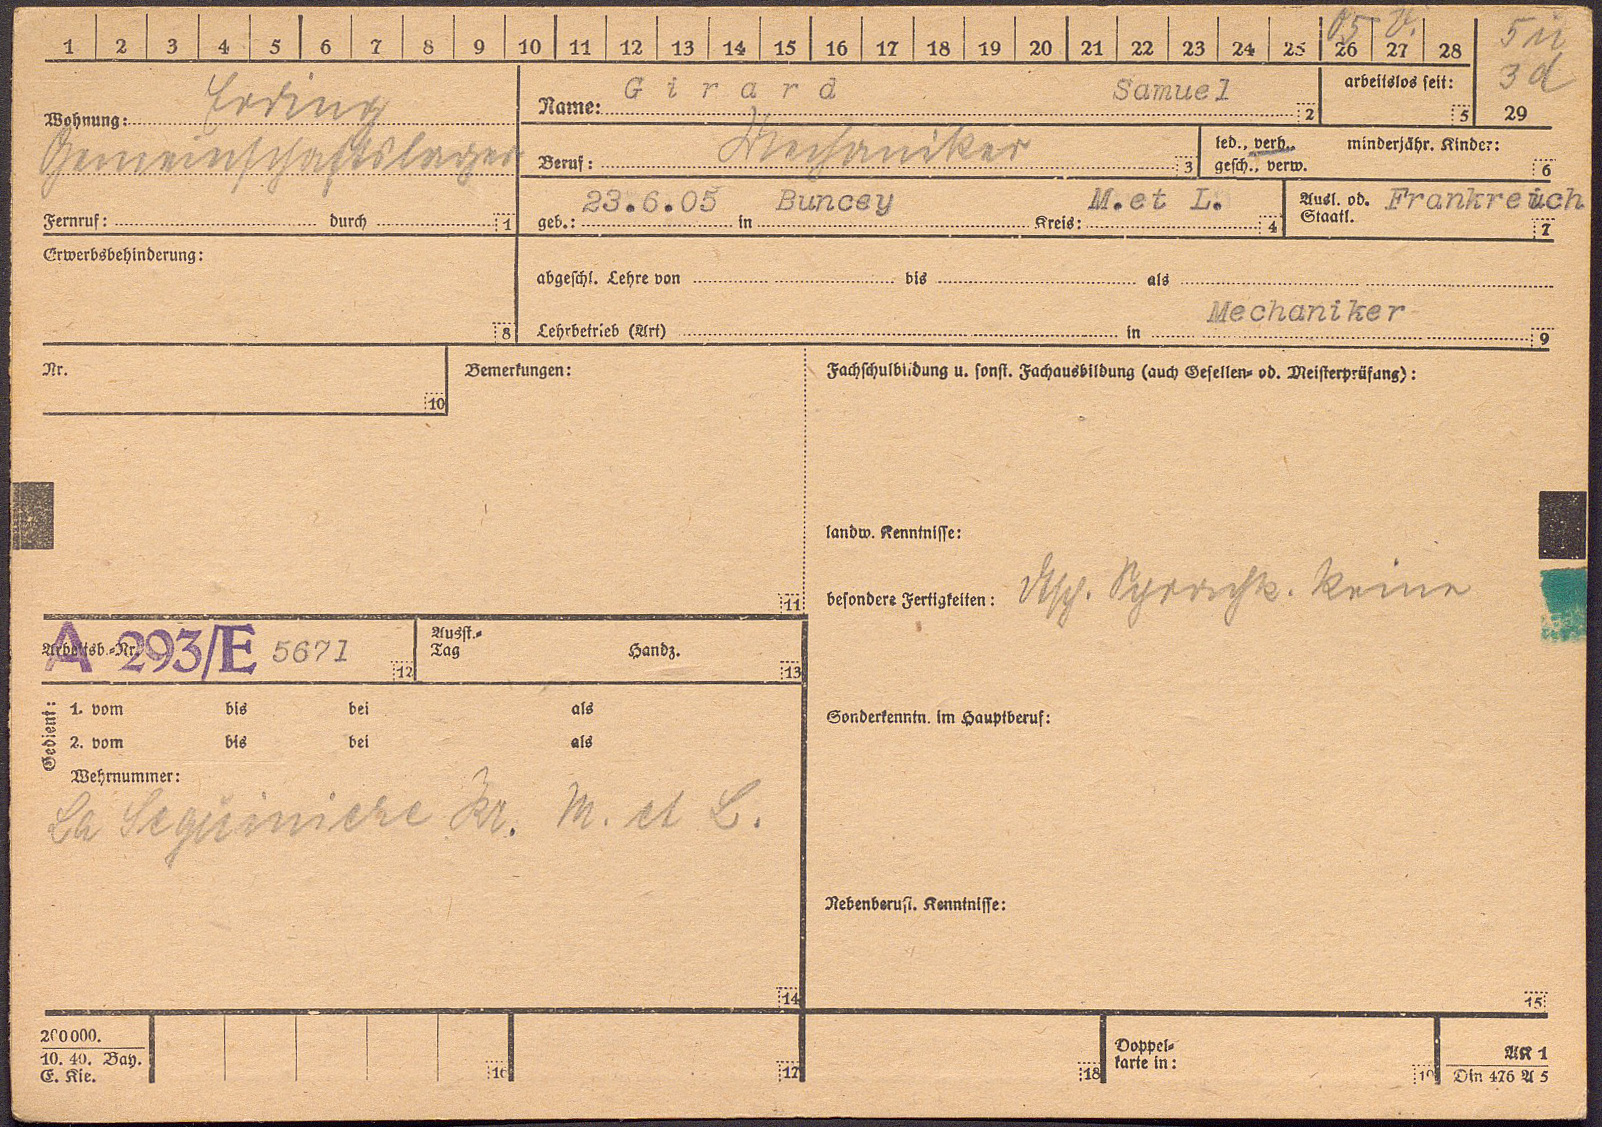 1 2 3 4 5 6 7 8 9 10 11 12 13 14 15 16 17 18 19 20 21 22 23 24 25 26 27 28
05 V.
5 ii
3 d
29
Wohnung: Erding
Gemeinschaftslager
Fernruf: durch 1
Name: Girard Samuel 2
arbeitslos seit: 5
Beruf: Mechaniker 3
led., verh.,
gesch., verw.
minderjähr. Kinder: 6
geb.: 23.6.05 in Buncey Kreis: M.et L. 4
Ausl. od.
Staatl. Frankreich 7
Erwerbsbehinderung: 8
abgeschl. Lehre von bis als
Mechaniker
Lehrbetrieb (Art) in 9
Nr. 10
Bemerkungen: 11
Fachschulbildung u. sonst. Fachausbildung (auch Gesellen- od. Meisterprüfung):
landw. Kenntnisse:
besondere Fertigkeiten: dtsch. Sprachk. keine
Sonderkenntn. im Hauptberuf:
Nebenberufl. Kenntnisse:
15
Arbeitsb.-Nr. A 293/E 5671 12
Ausst.-
Tag Handz. 13
Gedient:
1. vom bis bei als
2. vom bis bei als
Wehrnummer:
La Seguiniere Kr. M. et L.
14
200000.
10. 40. Bay.
E. Kie.
16 17 18
Doppel-
karte in: 19
AK 1
Din 476 A 5